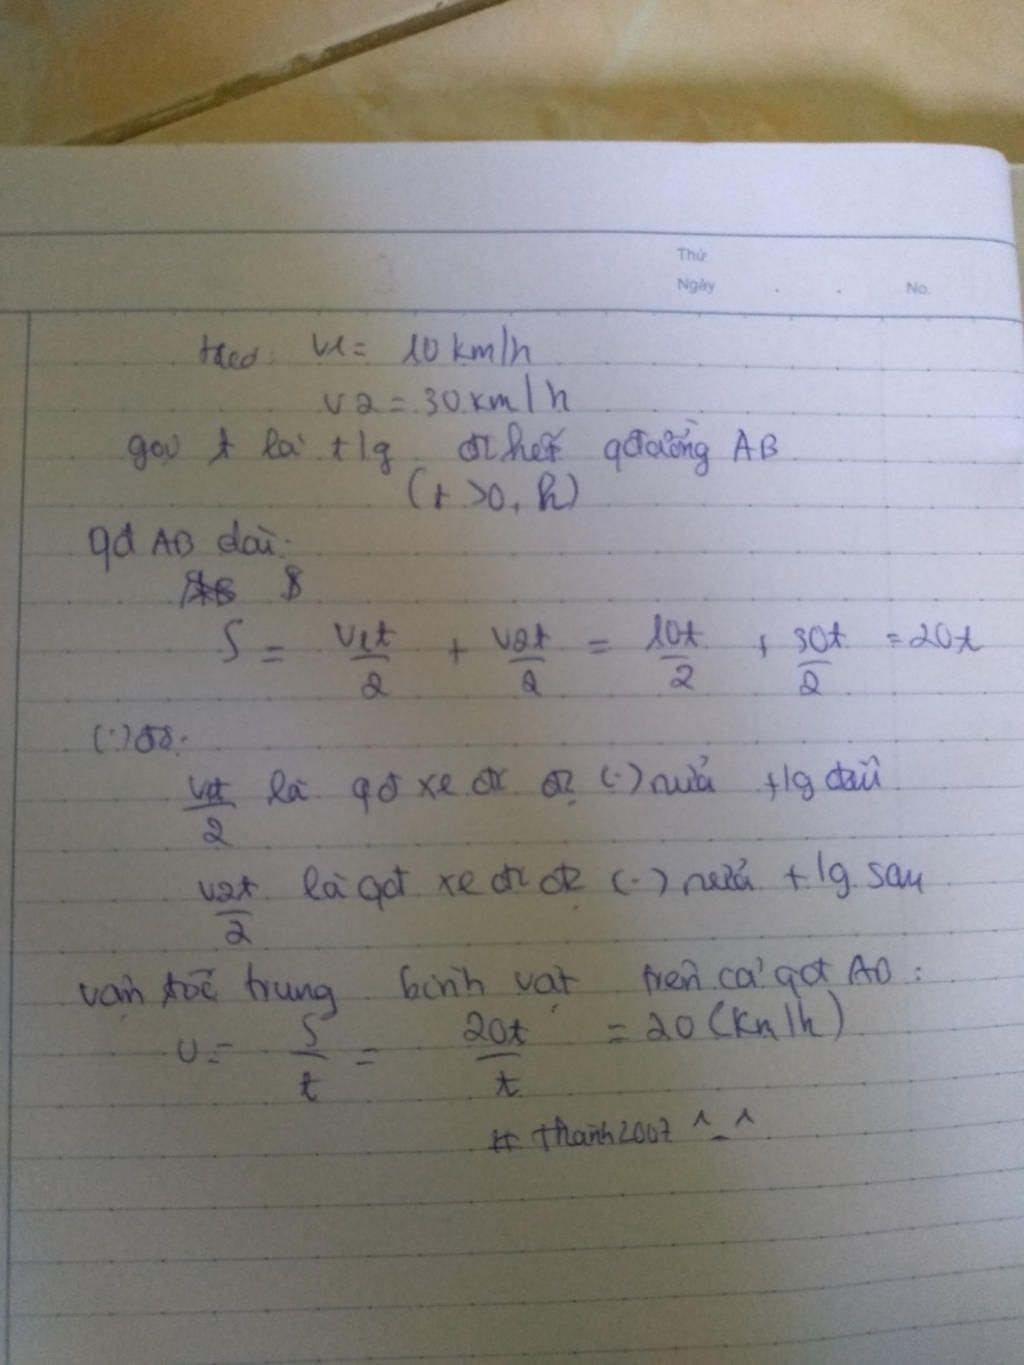 Thứ
Ngày . . No.
theo: v1 = 10 km/h
v2 = 30 km/h
gọi t là t/g đi hết qđường AB
(t >0, h)
qđ AB dài:
S
S = v1t/2 + v2t/2 = 10t/2 + 30t/2 = 20t
(.) đó:
v1t/2 là qđ xe đi đc (.) nửa t/g đầu
v2t/2 là qđ xe đi đc (.) nửa t/g sau
vận tốc trung bình vật trên cả qđ AB :
v = S/t = 20t/t = 20 (km/h)
# thanh2007 ^_^